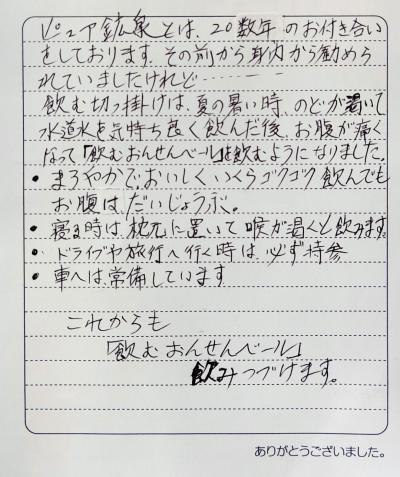 ピュア鉱泉とは、20数年のお付き合い
をしております。その前から身内から勧めら
れていましたけれど…………
飲む切っ掛けは、夏の暑い時、のどが渇いて
水道水を気持ち良く飲んだ後、お腹が痛く
なって「飲むおんせんベール」を飲むようになりました。
• まろやかで、おいしく、いくらゴクゴク飲んでも
お腹はだいじょうぶ。
• 寝る時は枕元に置いて喉が渇くと飲みます。
• ドライブや旅行へ行く時は必ず持参
• 車へは常備しています
これからも
「飲むおんせんベール」
飲みつづけます。
ありがとうございました。